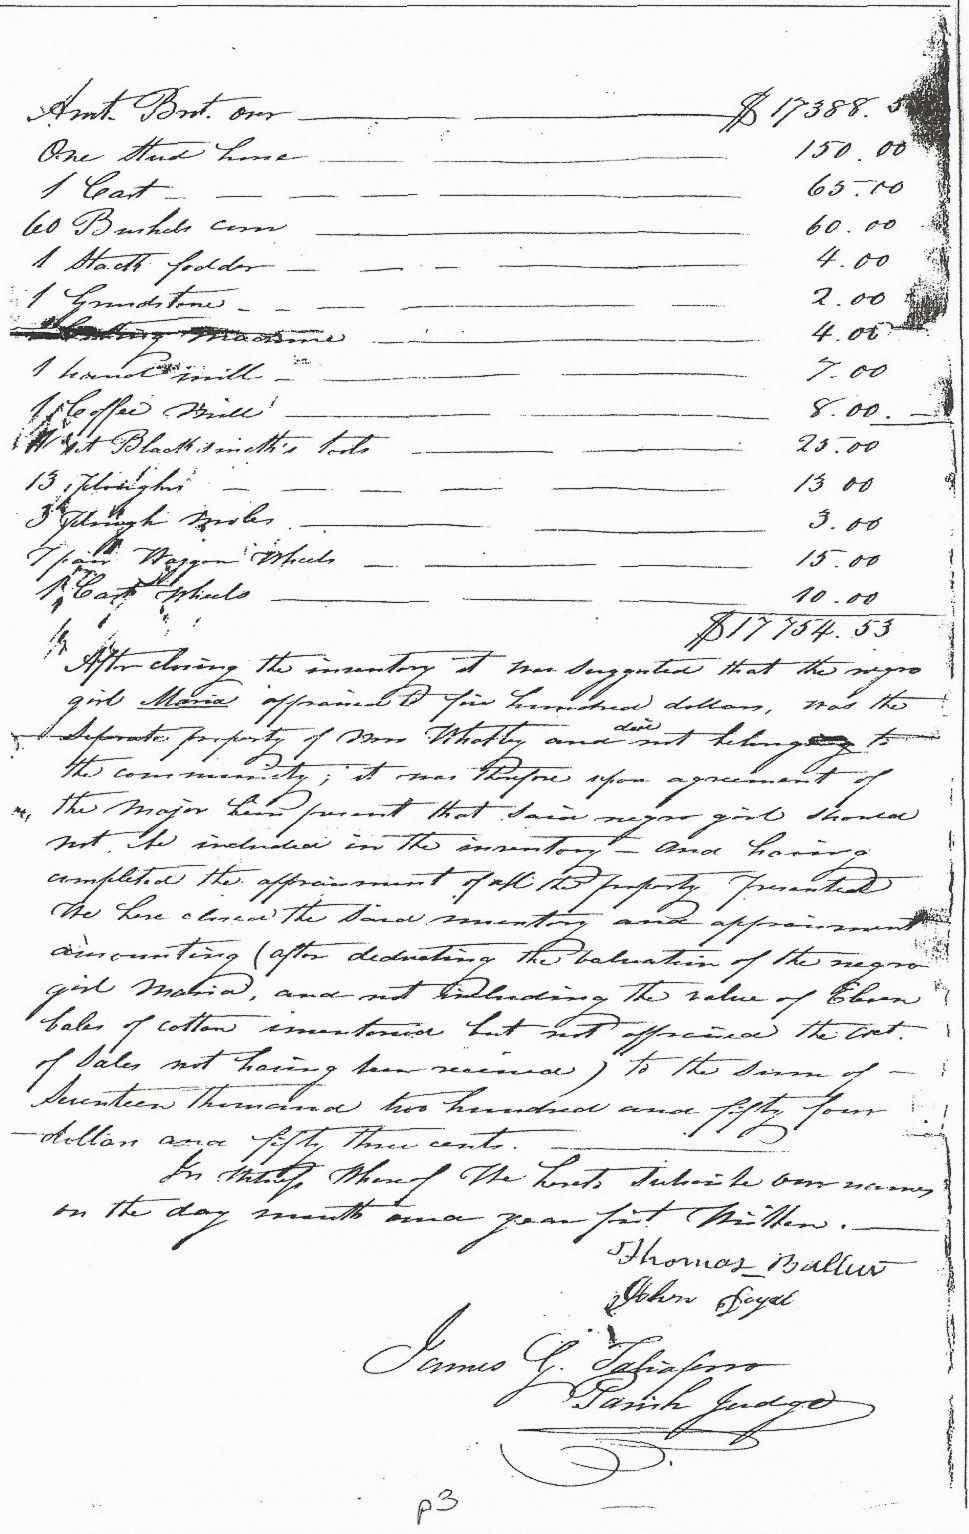 Amt. Brt. over $17388.5
One stud horse 150.00
1 Cart 65.00
60 Bushels corn 60.00
1 Stack fodder 4.00
1 Grindstone 2.00
Machine 4.00
1 hand mill 7.00
1 Coffee Mill 8.00
set Blacksmith's tools 25.00
13 Ploughs 13 00
3 Plough moles 3.00
7 pair Waggon Wheels 15.00
1 Cart Wheels 10.00
$17754.53
After closing the inventory it was suggested that the negro
girl Maria appraised @ five hundred dollars, was the
Seperate property of Mrs Whatley and did not belong to
the community; it was therefore upon agreement of
the Major heirs present that said negro girl should
not be included in the inventory – and having
completed the appraisment of all the property presented
We here closed the said inventory and appraisment
amounting (after deducting the valuation of the negro
girl Maria, and not including the value of Eleven
bales of cotton inventoried but not appraised the act.
of Sales not having been received) to the sum of –
Seventeen thousand two hundred and fifty four
dollars and fifty three cents.
In Witness Whereof We hereto subscribe our names
on the day month and year first Written.
Thomas
John
James G. Taliaferro
Parish Judge
p3